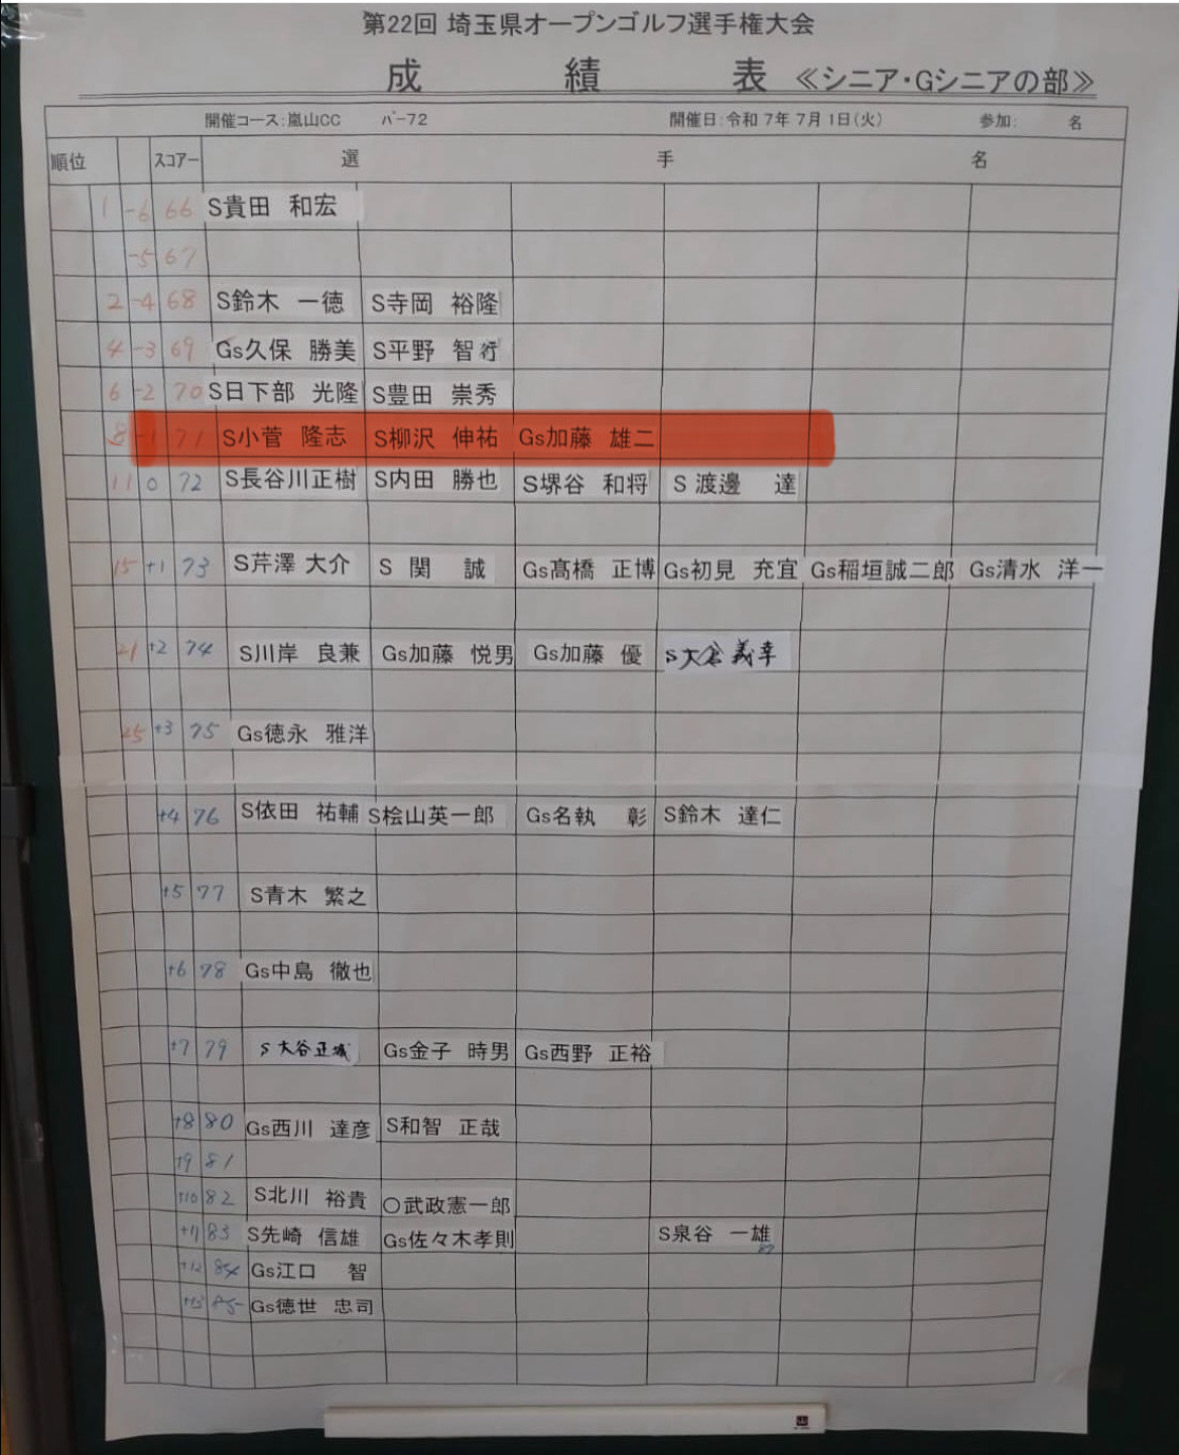 第22回 埼玉県オープンゴルフ選手権大会
成績表 ≪シニア・Gシニアの部≫
開催コース:嵐山CC パー72 開催日:令和 7年 7月 1日(火) 参加: 名
順位 スコアー 選手名
1 -6 66 S貴田 和宏
-5 67
2 -4 68 S鈴木 一徳 S寺岡 裕隆
4 -3 69 Gs久保 勝美 S平野 智行
6 -2 70 S日下部 光隆 S豊田 崇秀
8 -1 71 S小菅 隆志 S柳沢 伸祐 Gs加藤 雄二
11 0 72 S長谷川正樹 S内田 勝也 S堺谷 和将 S 渡邊 達
15 +1 73 S芹澤 大介 S 関 誠 Gs髙橋 正博 Gs初見 充宜 Gs稲垣誠二郎 Gs清水 洋一
21 +2 74 S川岸 良兼 Gs加藤 悦男 Gs加藤 優 S大倉 義幸
25 +3 75 Gs徳永 雅洋
+4 76 S依田 祐輔 S桧山英一郎 Gs名執 彰 S鈴木 達仁
+5 77 S青木 繁之
+6 78 Gs中島 徹也
+7 79 S 大谷 Gs金子 時男 Gs西野 正裕
+8 80 Gs西川 達彦 S和智 正哉
+9 81
+10 82 S北川 裕貴 〇武政憲一郎
+11 83 S先崎 信雄 Gs佐々木孝則 S泉谷 一雄
+12 84 Gs江口 智
+13 85 Gs徳世 忠司